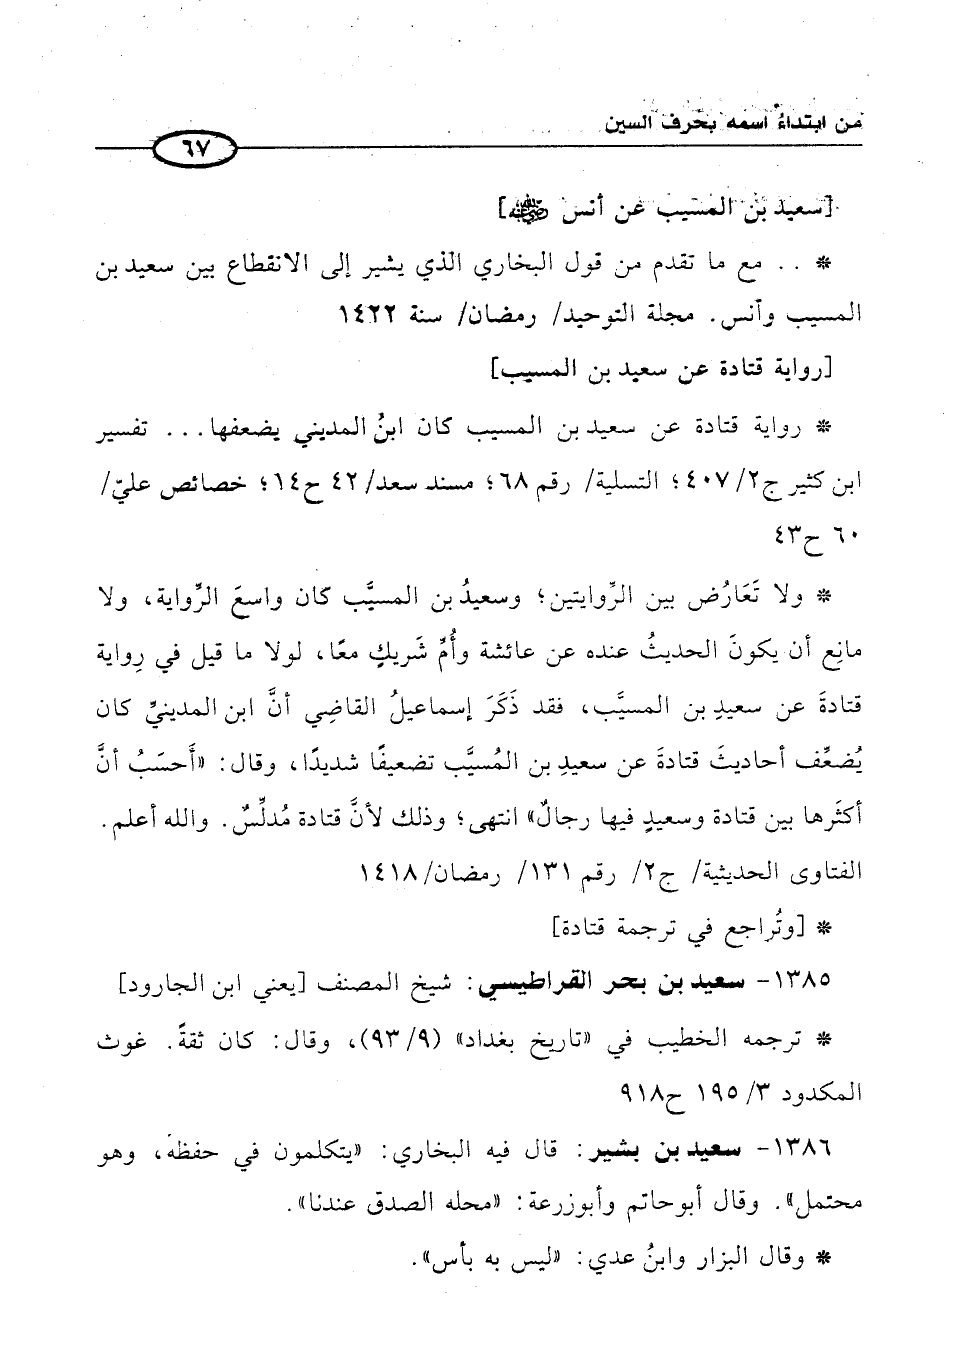 من ابتداءُ اسمه بحرف السين
٦٧
[سعيد بن المسيب عن أنس رضي الله عنه]
* . . مع ما تقدم من قول البخاري الذي يشير إلى الانقطاع بين سعيد بن
المسيب وأنس. مجلة التوحيد/ رمضان/ سنة ١٤٢٢
[رواية قتادة عن سعيد بن المسيب]
* رواية قتادة عن سعيد بن المسيب كان ابنُ المديني يضعفها... تفسير
ابن كثير ج٢/ ٤٠٧؛ التسلية/ رقم ٦٨؛ مسند سعد/ ٤٢ ح١٤؛ خصائص عليّ/
٦٠ ح٤٣
* ولا تَعَارُض بين الرِّوايتين؛ وسعيدُ بن المسيَّب كان واسعَ الرِّواية، ولا
مانِع أن يكونَ الحديثُ عنده عن عائشة وأُمِّ شَريكٍ معًا، لولا ما قيل في رِواية
قتادةَ عن سعيدِ بن المسيَّب، فقد ذَكَرَ إسماعيلُ القاضِي أنَّ ابن المدينيِّ كان
يُضعِّف أحاديثَ قتادةَ عن سعيدِ بن المُسيَّب تضعيفًا شديدًا، وقال: «أَحسَبُ أنَّ
أكثَرها بين قتادة وسعيدٍ فيها رجالٌ» انتهى؛ وذلك لأنَّ قتادة مُدلِّسٌ. والله أعلم.
الفتاوى الحديثية/ ج٢/ رقم ١٣١/ رمضان/ ١٤١٨
* [وتُراجع في ترجمة قتادة]
١٣٨٥- سعيد بن بحر القراطيسي: شيخ المصنف [يعني ابن الجارود]
* ترجمه الخطيب في «تاريخ بغداد» (٩/ ٩٣)، وقال: كان ثقةً. غوث
المكدود ٣/ ١٩٥ ح٩١٨
١٣٨٦- سعيد بن بشير: قال فيه البخاري: «يتكلمون في حفظه، وهو
محتمل». وقال أبوحاتم وأبوزرعة: «محله الصدق عندنا».
* وقال البزار وابنُ عدي: «ليس به بأس».